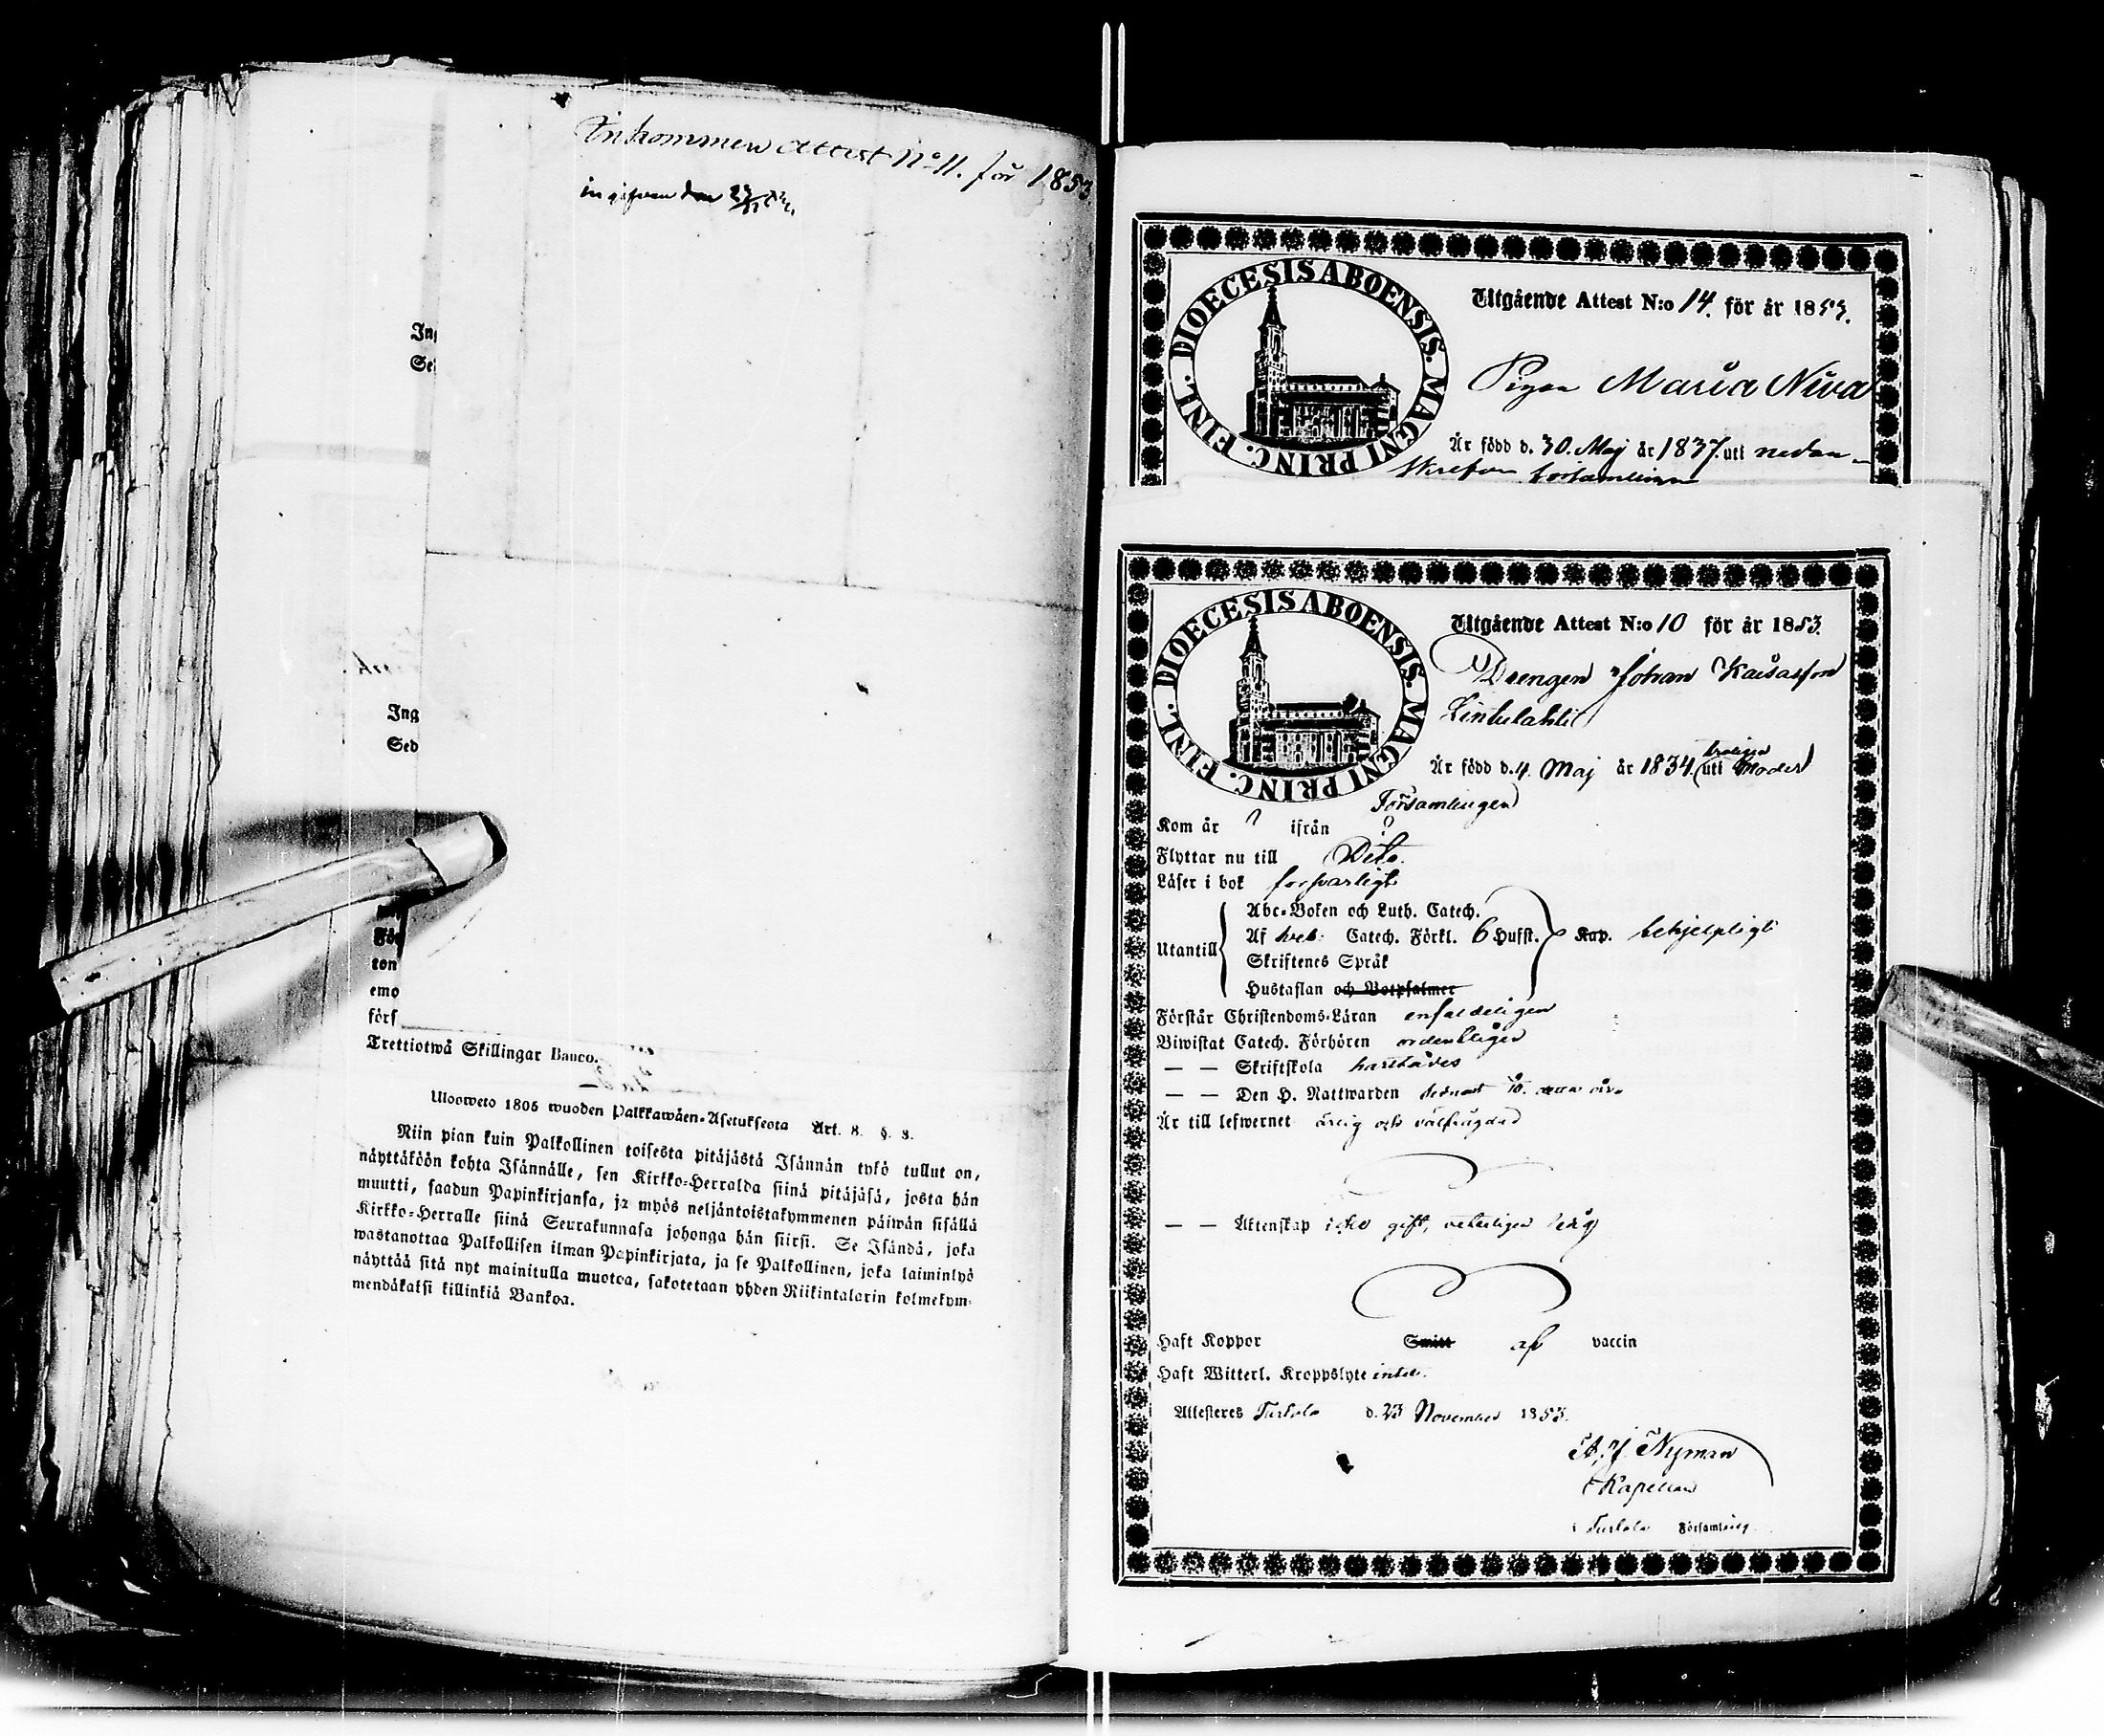 Inkommen Attest No 11. för 1853
ingifven den
In
Se
Ing
Sed
För
ton
emo
förs
Trettiotwå Skillingar Banco.
Ulosweto 1805 wuoden Palkkawäen-Asetuksesta Art. 8. §. 8.
Niin pian kuin Palkollinen toisesta pitäjästä Isännän tykö tullut on,
näyttäköön kohta Isännälle, sen Kirkko-Herralda siinä pitäjäsä, josta hän
muutti, saadun Papinkirjansa, ja myös neljäntoistakymmenen päiwän sisällä
Kirkko-Herralle siinä Seurakunnasa johonga hän siirsi. Se Isändä, joka
wastanottaa Palkollisen ilman Papinkirjata, ja se Palkollinen, joka laiminlyö
näyttää sitä nyt mainitulla muotoa, sakotetaan yhden Riikintalarin kolmekym-
mendäkaksi killinkiä Bankoa.
DIOECESIS ABOENSIS. MAGNI PRINC. FINL.
Utgående Attest N:o 14. för år 1853.
Pigan Maria Niva
Är född d. 30. Maj år 1837. uti nedan-
skrefne församling
DIOECESIS ABOENSIS. MAGNI PRINC. FINL.
Utgående Attest N:o 10 för år 1853.
Drengen Johan Kaisasson
Lintulahti
Är född d. 4. Maj år 1834. (troligen uti Moder
Församlingen)
Kom år ? ifrån ?
Flyttar nu till Dito.
Läser i bok försvarligt
Utantill
Abc-Boken och Luth. Catech.
Af Sveb. Catech. Förkl. 6 Hufst. Kap. behjelpligt
Skriftenes Språk
Hustaflan och Botpsalmer
Förstår Christendoms-Läran enfaldeligen
Biwistat Catech. Förhören ordentligen
— — Skriftskola
— — Den H. Nattwarden
Är till lefwernet ärlig och välfrägdad
— — Äktenskap icke gift, veterligen ledig
Haft Koppor Smitt af vaccin
Haft Witterl. Kroppslyte intet.
Attesteres Turtola d. 23 November 1853.
A. J. Nyman
Kapellan
Turtola Församling.